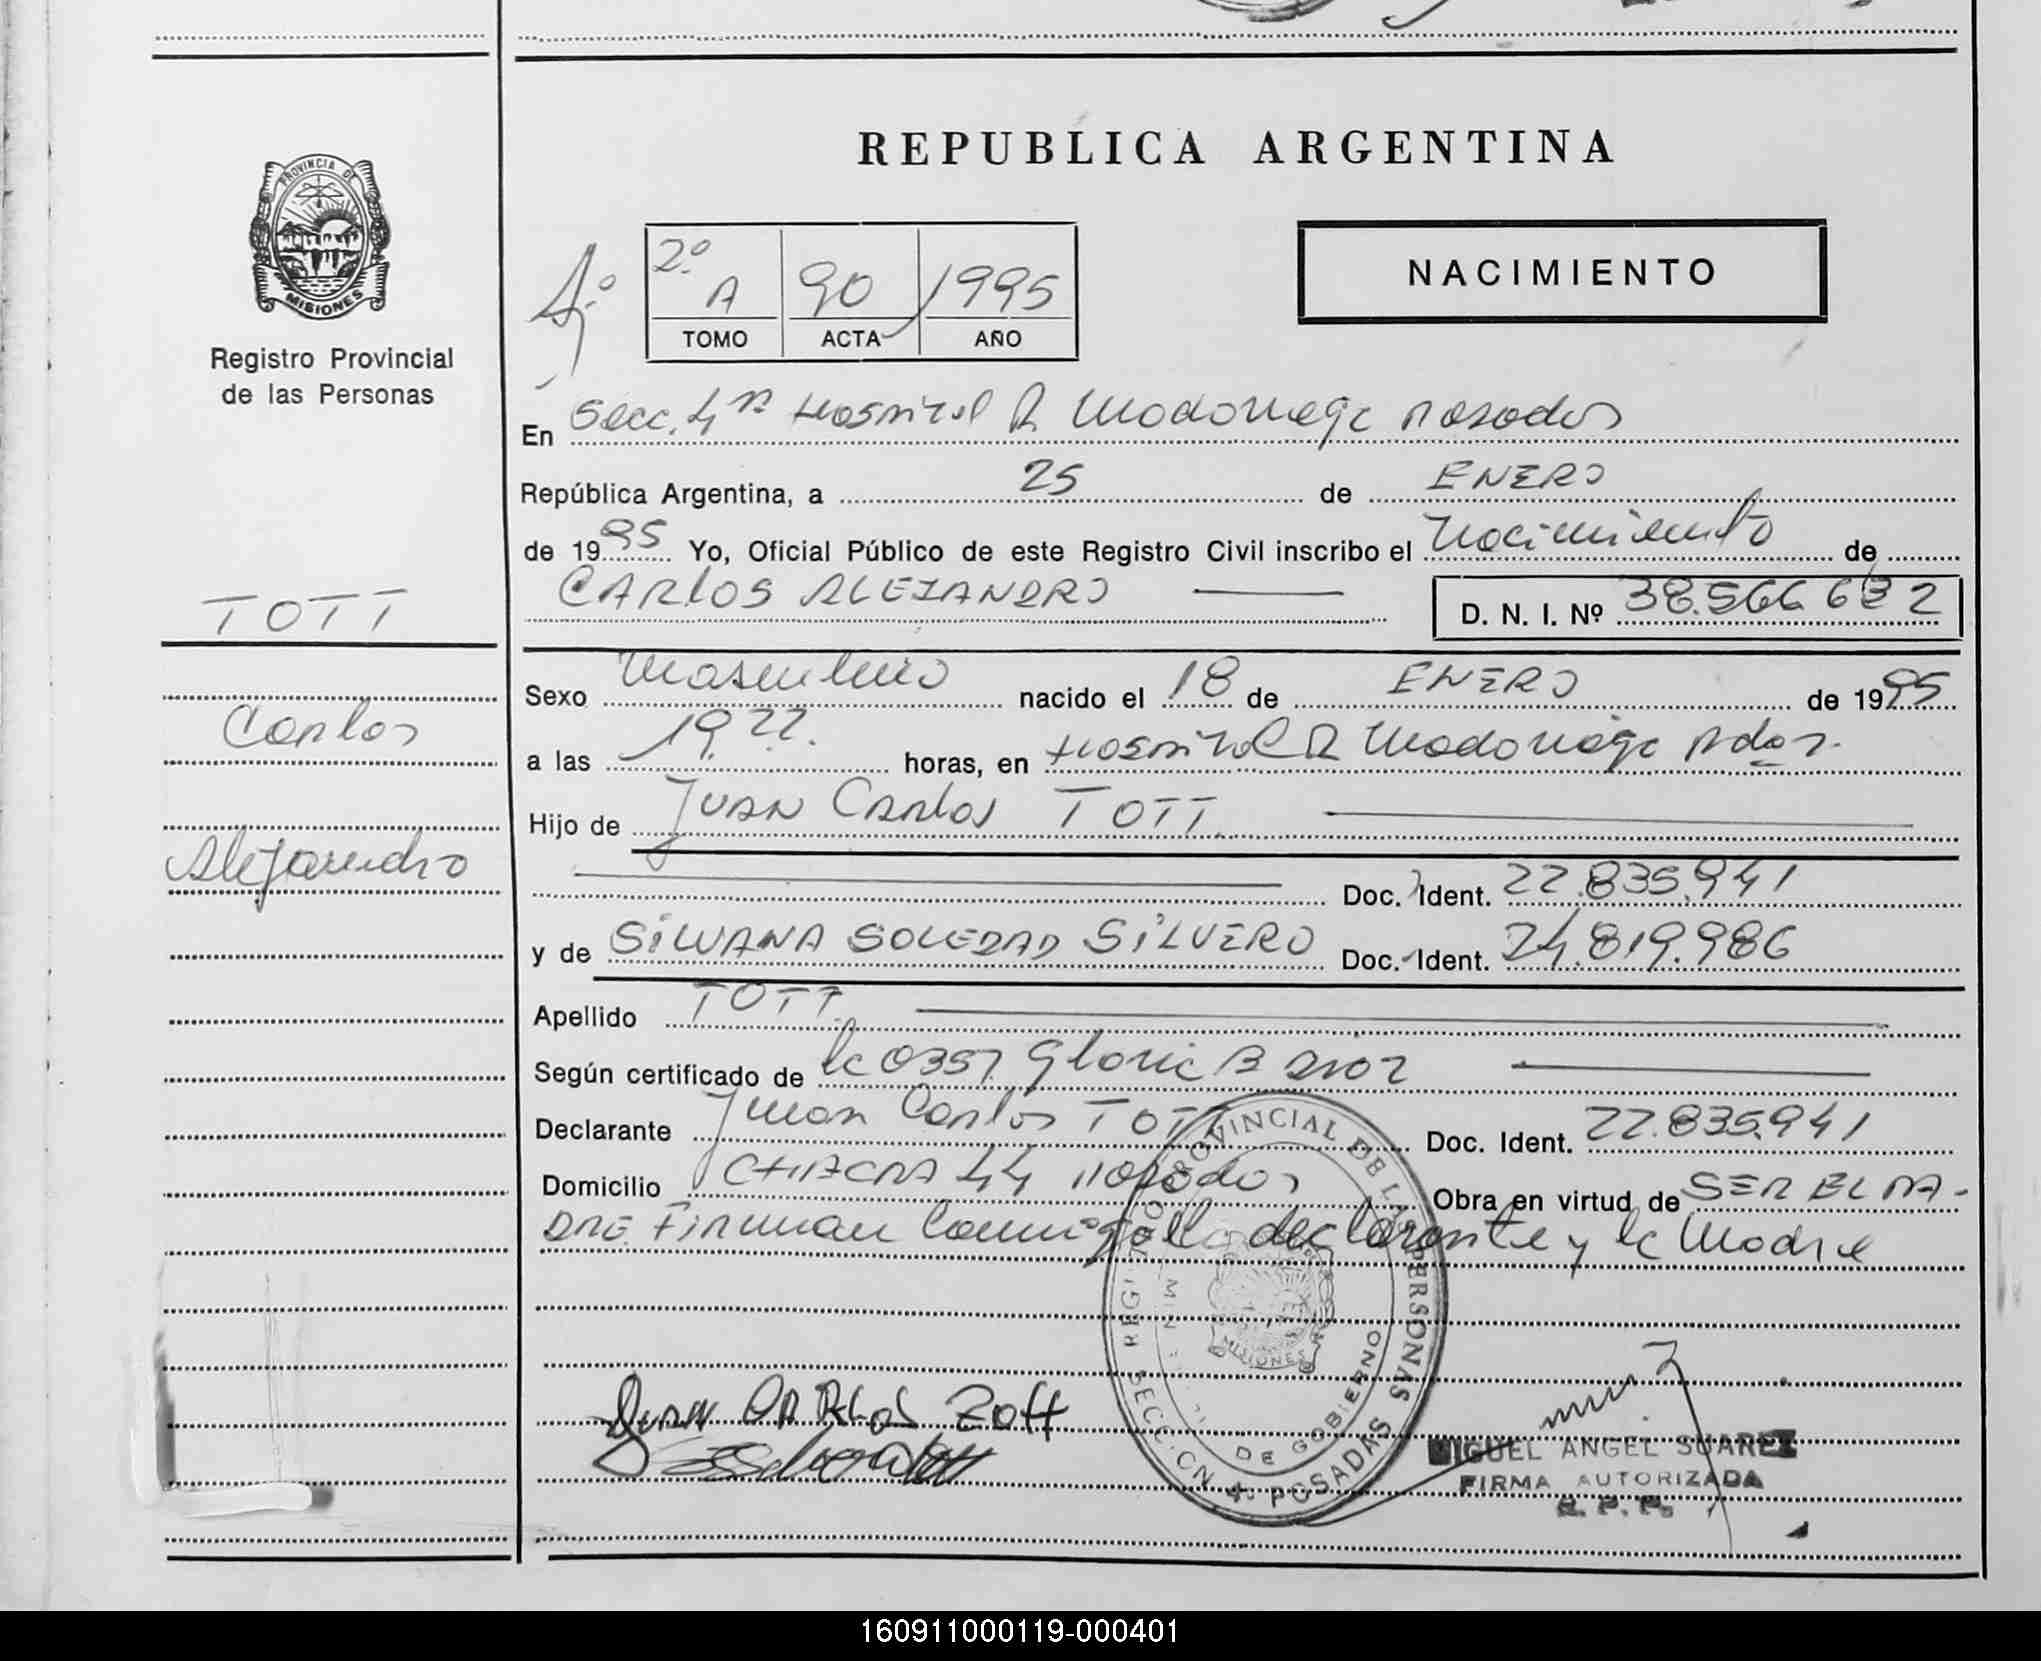 REPUBLICA ARGENTINA
PROVINCIA DE MISIONES
Registro Provincial
de las Personas
2º A 90 1995
TOMO ACTA AÑO
NACIMIENTO
En Secc. 4ta Hospital R Madariaga Posadas
República Argentina, a 25 de ENERO
de 1995 Yo, Oficial Público de este Registro Civil inscribo el Nacimiento de
CARLOS ALEJANDRO D. N. I. Nº 38.566.632
TOTT
Carlos
Alejandro
Sexo Masculino nacido el 18 de ENERO de 1995
a las 19.22. horas, en Hospital R Madariaga Pdas.
Hijo de JUAN CARLOS TOTT
Doc. Ident. 22.835.941
y de SILVANA SOLEDAD SILVERO Doc. Ident. 24.819.986
Apellido TOTT
Según certificado de la 0357 Gloria B
Declarante Juan Carlos TOTT Doc. Ident. 22.835.941
Domicilio CHACRA 44 Posadas Obra en virtud de SER EL PA-
DRE. Firman Conmigo el declarante y la Madre
REGISTRO PROVINCIAL DE LAS PERSONAS
DE GOBIERNO
MISIONES
SECCION 4ª POSADAS
JUAN CARLOS Tott
MIGUEL ANGEL SUAREZ
FIRMA AUTORIZADA
R. P. P.
160911000119-000401